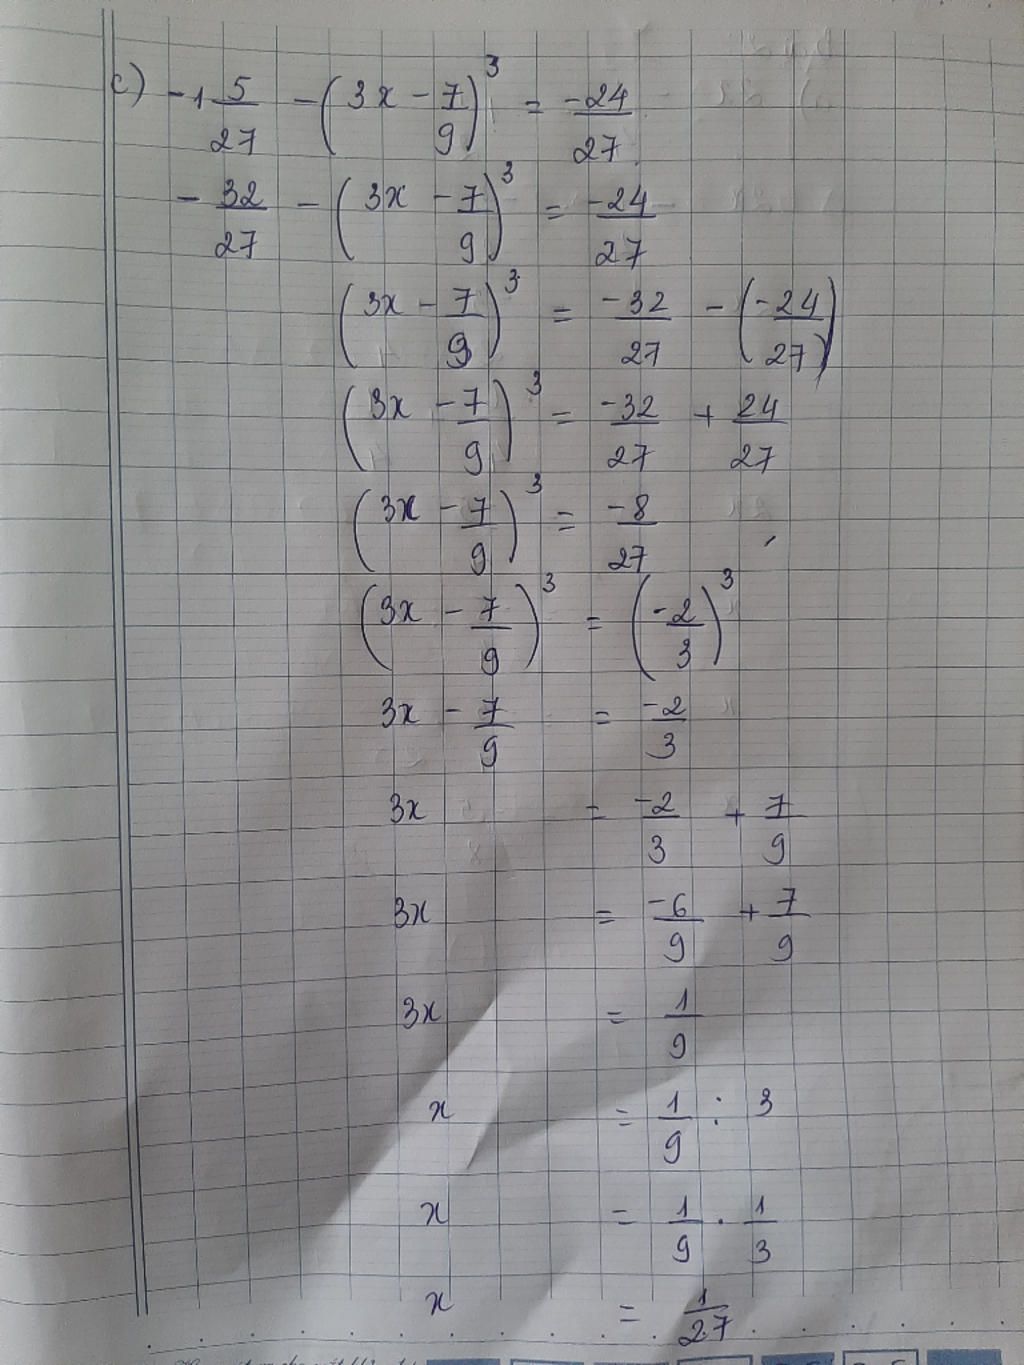 c) -1 5/27 - (3x - 7/9)^3 = -24/27
- 32/27 - (3x - 7/9)^3 = -24/27
(3x - 7/9)^3 = -32/27 - (-24/27)
(3x - 7/9)^3 = -32/27 + 24/27
(3x - 7/9)^3 = -8/27
(3x - 7/9)^3 = (-2/3)^3
3x - 7/9 = -2/3
3x = -2/3 + 7/9
3x = -6/9 + 7/9
3x = 1/9
x = 1/9 : 3
x = 1/9 . 1/3
x = 1/27